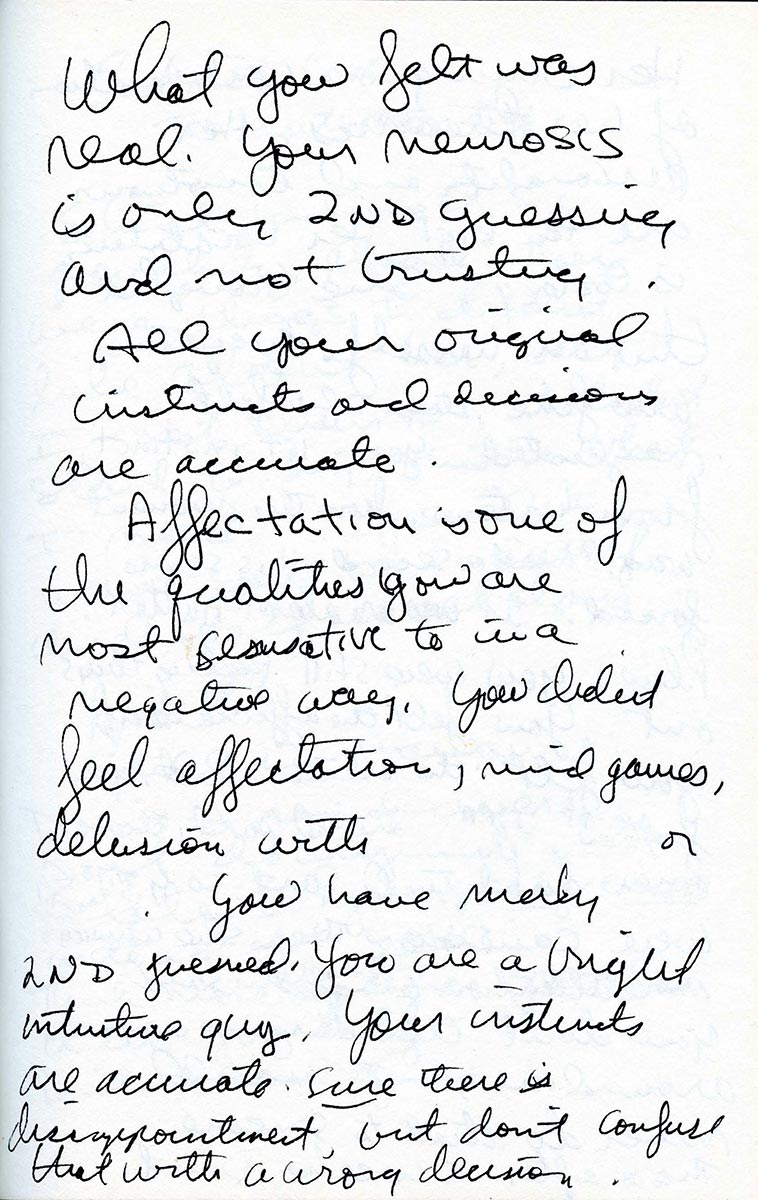 What you felt was
real. Your neurosis
is only 2ND guessing
and not trusting.
All your original
instincts and decisions
are accurate.
Affectation is one of
the qualities you are
most sensative to in a
negative way. You didnt
feel affectation, mind games,
delusion with or
. You have merely
2ND guessed. You are a bright
intuitive guy. Your instincts
are accurate. Sure there is
disappointment, but don't confuse
that with a wrong decision.